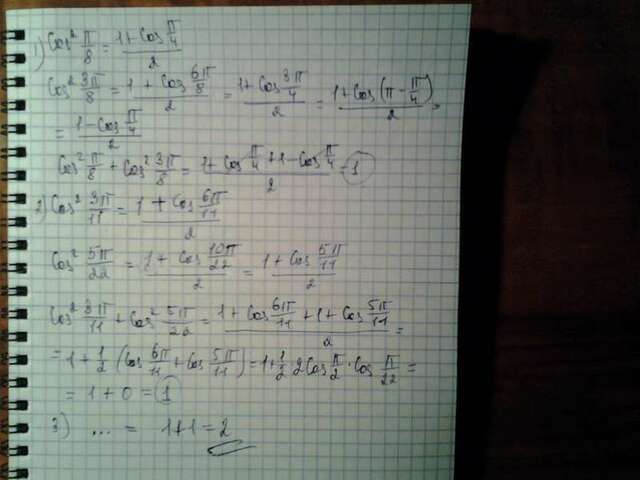 1) Cos² π/8 = (1 + Cos π/4)/2
Cos² 3π/8 = (1 + Cos 6π/8)/2 = (1 + Cos 3π/4)/2 = (1 + Cos(π - π/4))/2 =
= (1 - Cos π/4)/2
Cos² π/8 + Cos² 3π/8 = (1 + Cos π/4 + 1 - Cos π/4)/2 = 1
2) Cos² 3π/11 = (1 + Cos 6π/11)/2
Cos² 5π/22 = (1 + Cos 10π/22)/2 = (1 + Cos 5π/11)/2
Cos² 3π/11 + Cos² 5π/22 = (1 + Cos 6π/11 + 1 + Cos 5π/11)/2 =
= 1 + 1/2 (Cos 6π/11 + Cos 5π/11) = 1 + 1/2 · 2Cos π/2 · Cos π/22 =
= 1 + 0 = 1
3) ... = 1+1 = 2